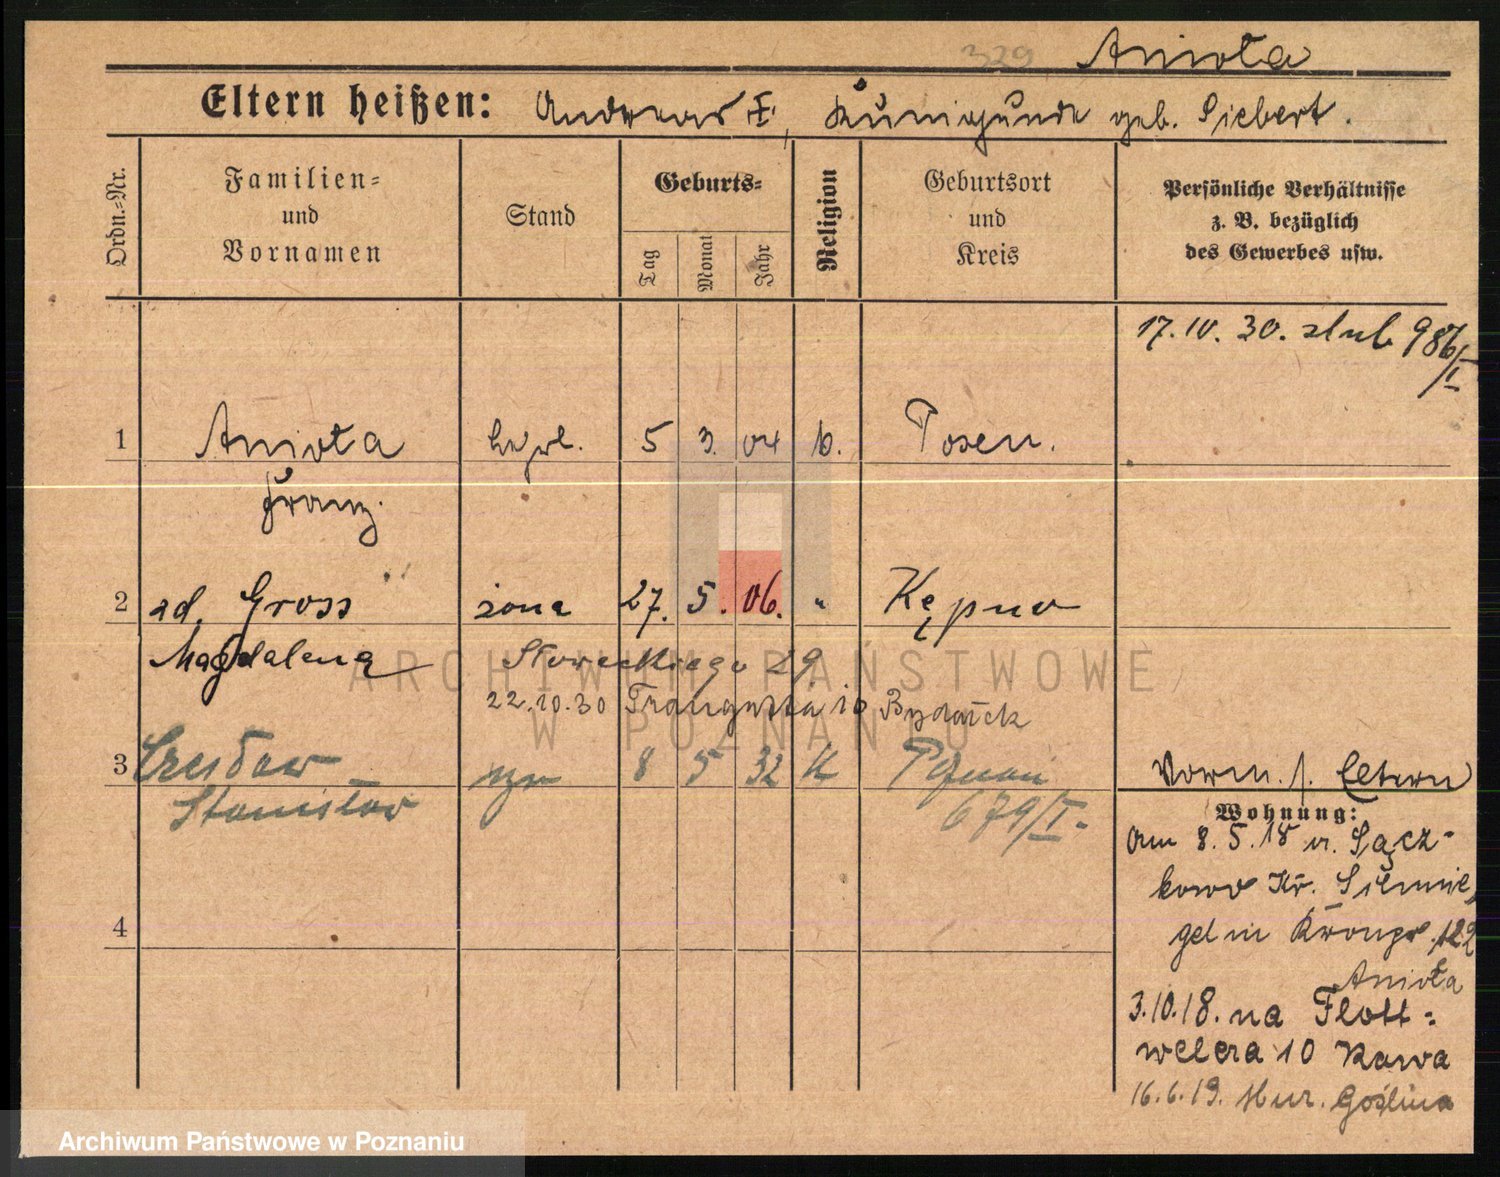 329 Anioła
Eltern heißen: Andreas I, Kunigunde geb. Siebert.
Ordn.=Nr.
Familien=
und
Vornamen
Stand
Geburts=
Tag
Monat
Jahr
Religion
Geburtsort
und
Kreis
Persönliche Verhältnisse
z. B. bezüglich
des Gewerbes usw.
17. 10. 30. slub 986/I
1 Anioła 5 3. 04 k. Posen.
Franz.
2 zd. Gross żona 27. 5. 06. " Kępno
Magdalena Słowackiego 29
22.10.30 Traugutta 10
3 Czesław syn 8 5 32 K Poznań
Stanisław 679/I.
4
Vorm. s. Eltern
Wohnung:
Am 8. 5. 18 v. Sącz-
kowo Kr. Schmie-
gel in Kronpr. 122
Anioła
3.10.18. na Flott=
wellera 10 Kawa
16.6.19. Mur. Goślina
ARCHIWUM PAŃSTWOWE
W POZNANIU
Archiwum Państwowe w Poznaniu